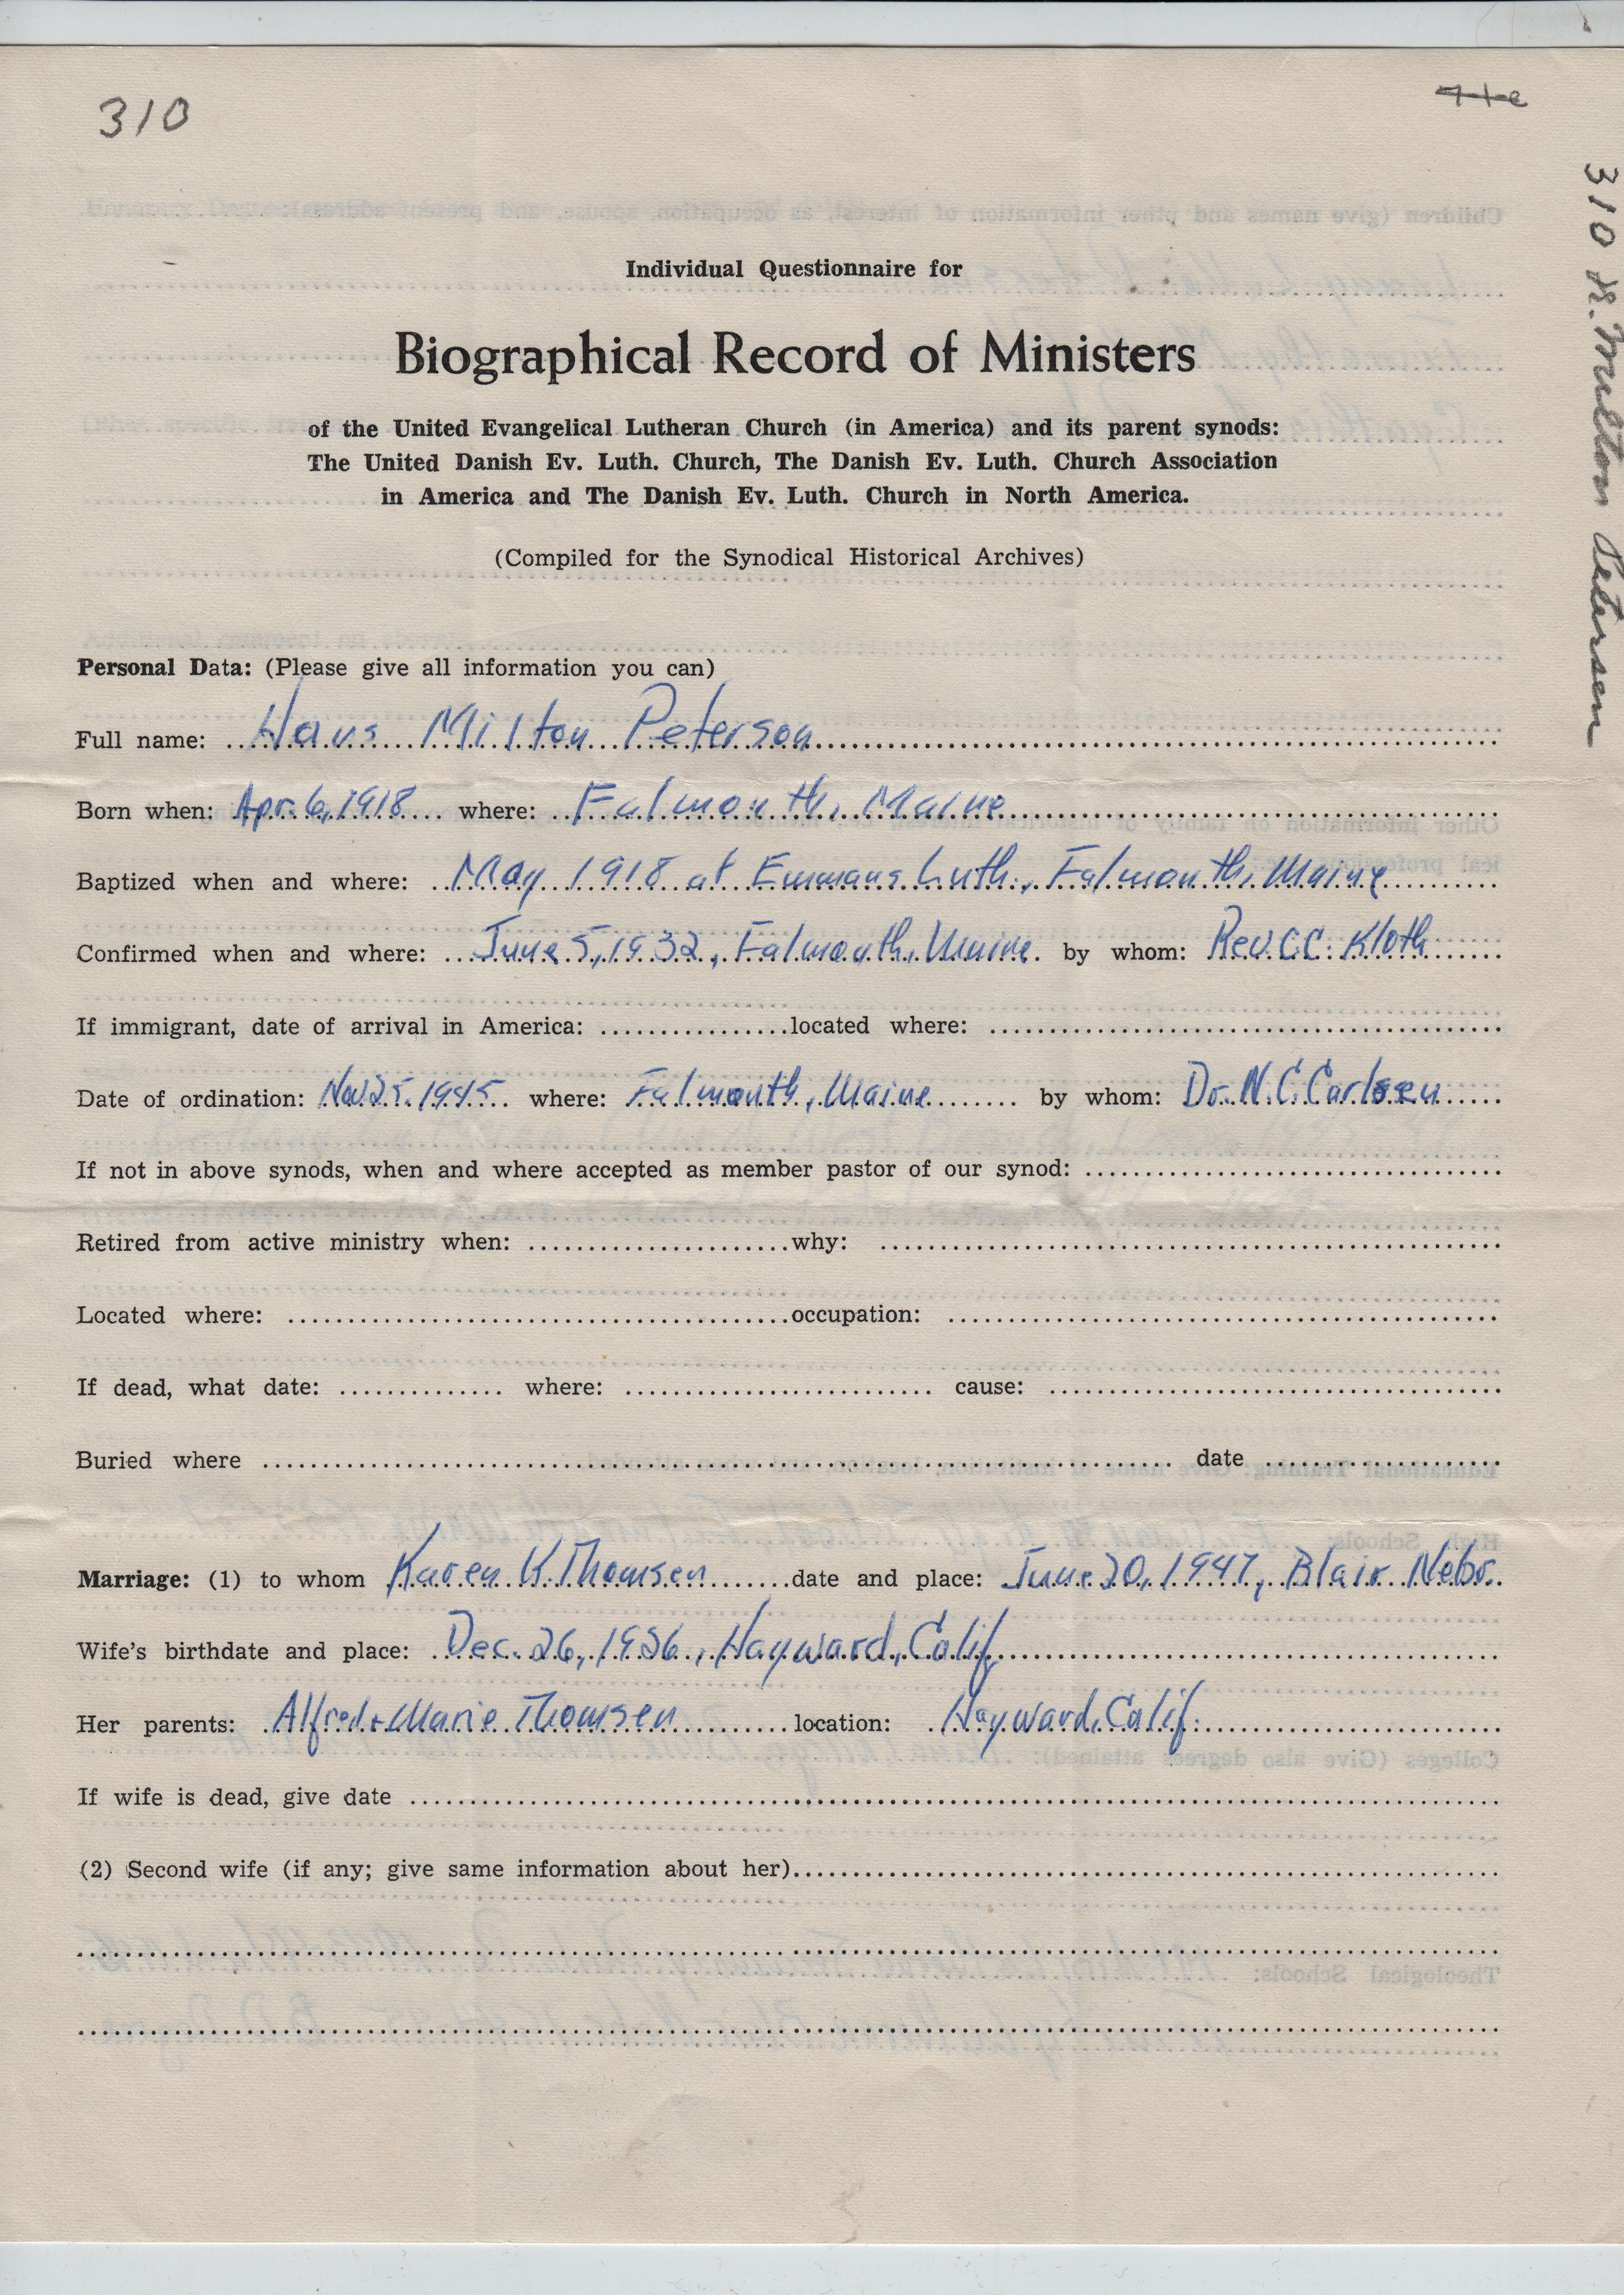 310
310 H. Milton Petersen
Individual Questionnaire for
Biographical Record of Ministers
of the United Evangelical Lutheran Church (in America) and its parent synods:
The United Danish Ev. Luth. Church, The Danish Ev. Luth. Church Association
in America and The Danish Ev. Luth. Church in North America.
(Compiled for the Synodical Historical Archives)
Personal Data: (Please give all information you can)
Full name: Hans Milton Peterson
Born when: Apr. 6, 1918 where: Falmouth, Maine
Baptized when and where: May 1918 at Emmaus Luth., Falmouth, Maine
Confirmed when and where: June 5, 1932, Falmouth, Maine by whom: Rev. C.C. Kloth
If immigrant, date of arrival in America: located where:
Date of ordination: Nov 25, 1945 where: Falmouth, Maine by whom: Dr. N.C. Carlsen
If not in above synods, when and where accepted as member pastor of our synod:
Retired from active ministry when: why:
Located where: occupation:
If dead, what date: where: cause:
Buried where date
Marriage: (1) to whom Karen K. Thomsen date and place: June 20, 1947, Blair Nebr.
Wife's birthdate and place: Dec. 26, 1926, Hayward, Calif
Her parents: Alfred + Marie Thomsen location: Hayward, Calif.
If wife is dead, give date
(2) Second wife (if any; give same information about her)